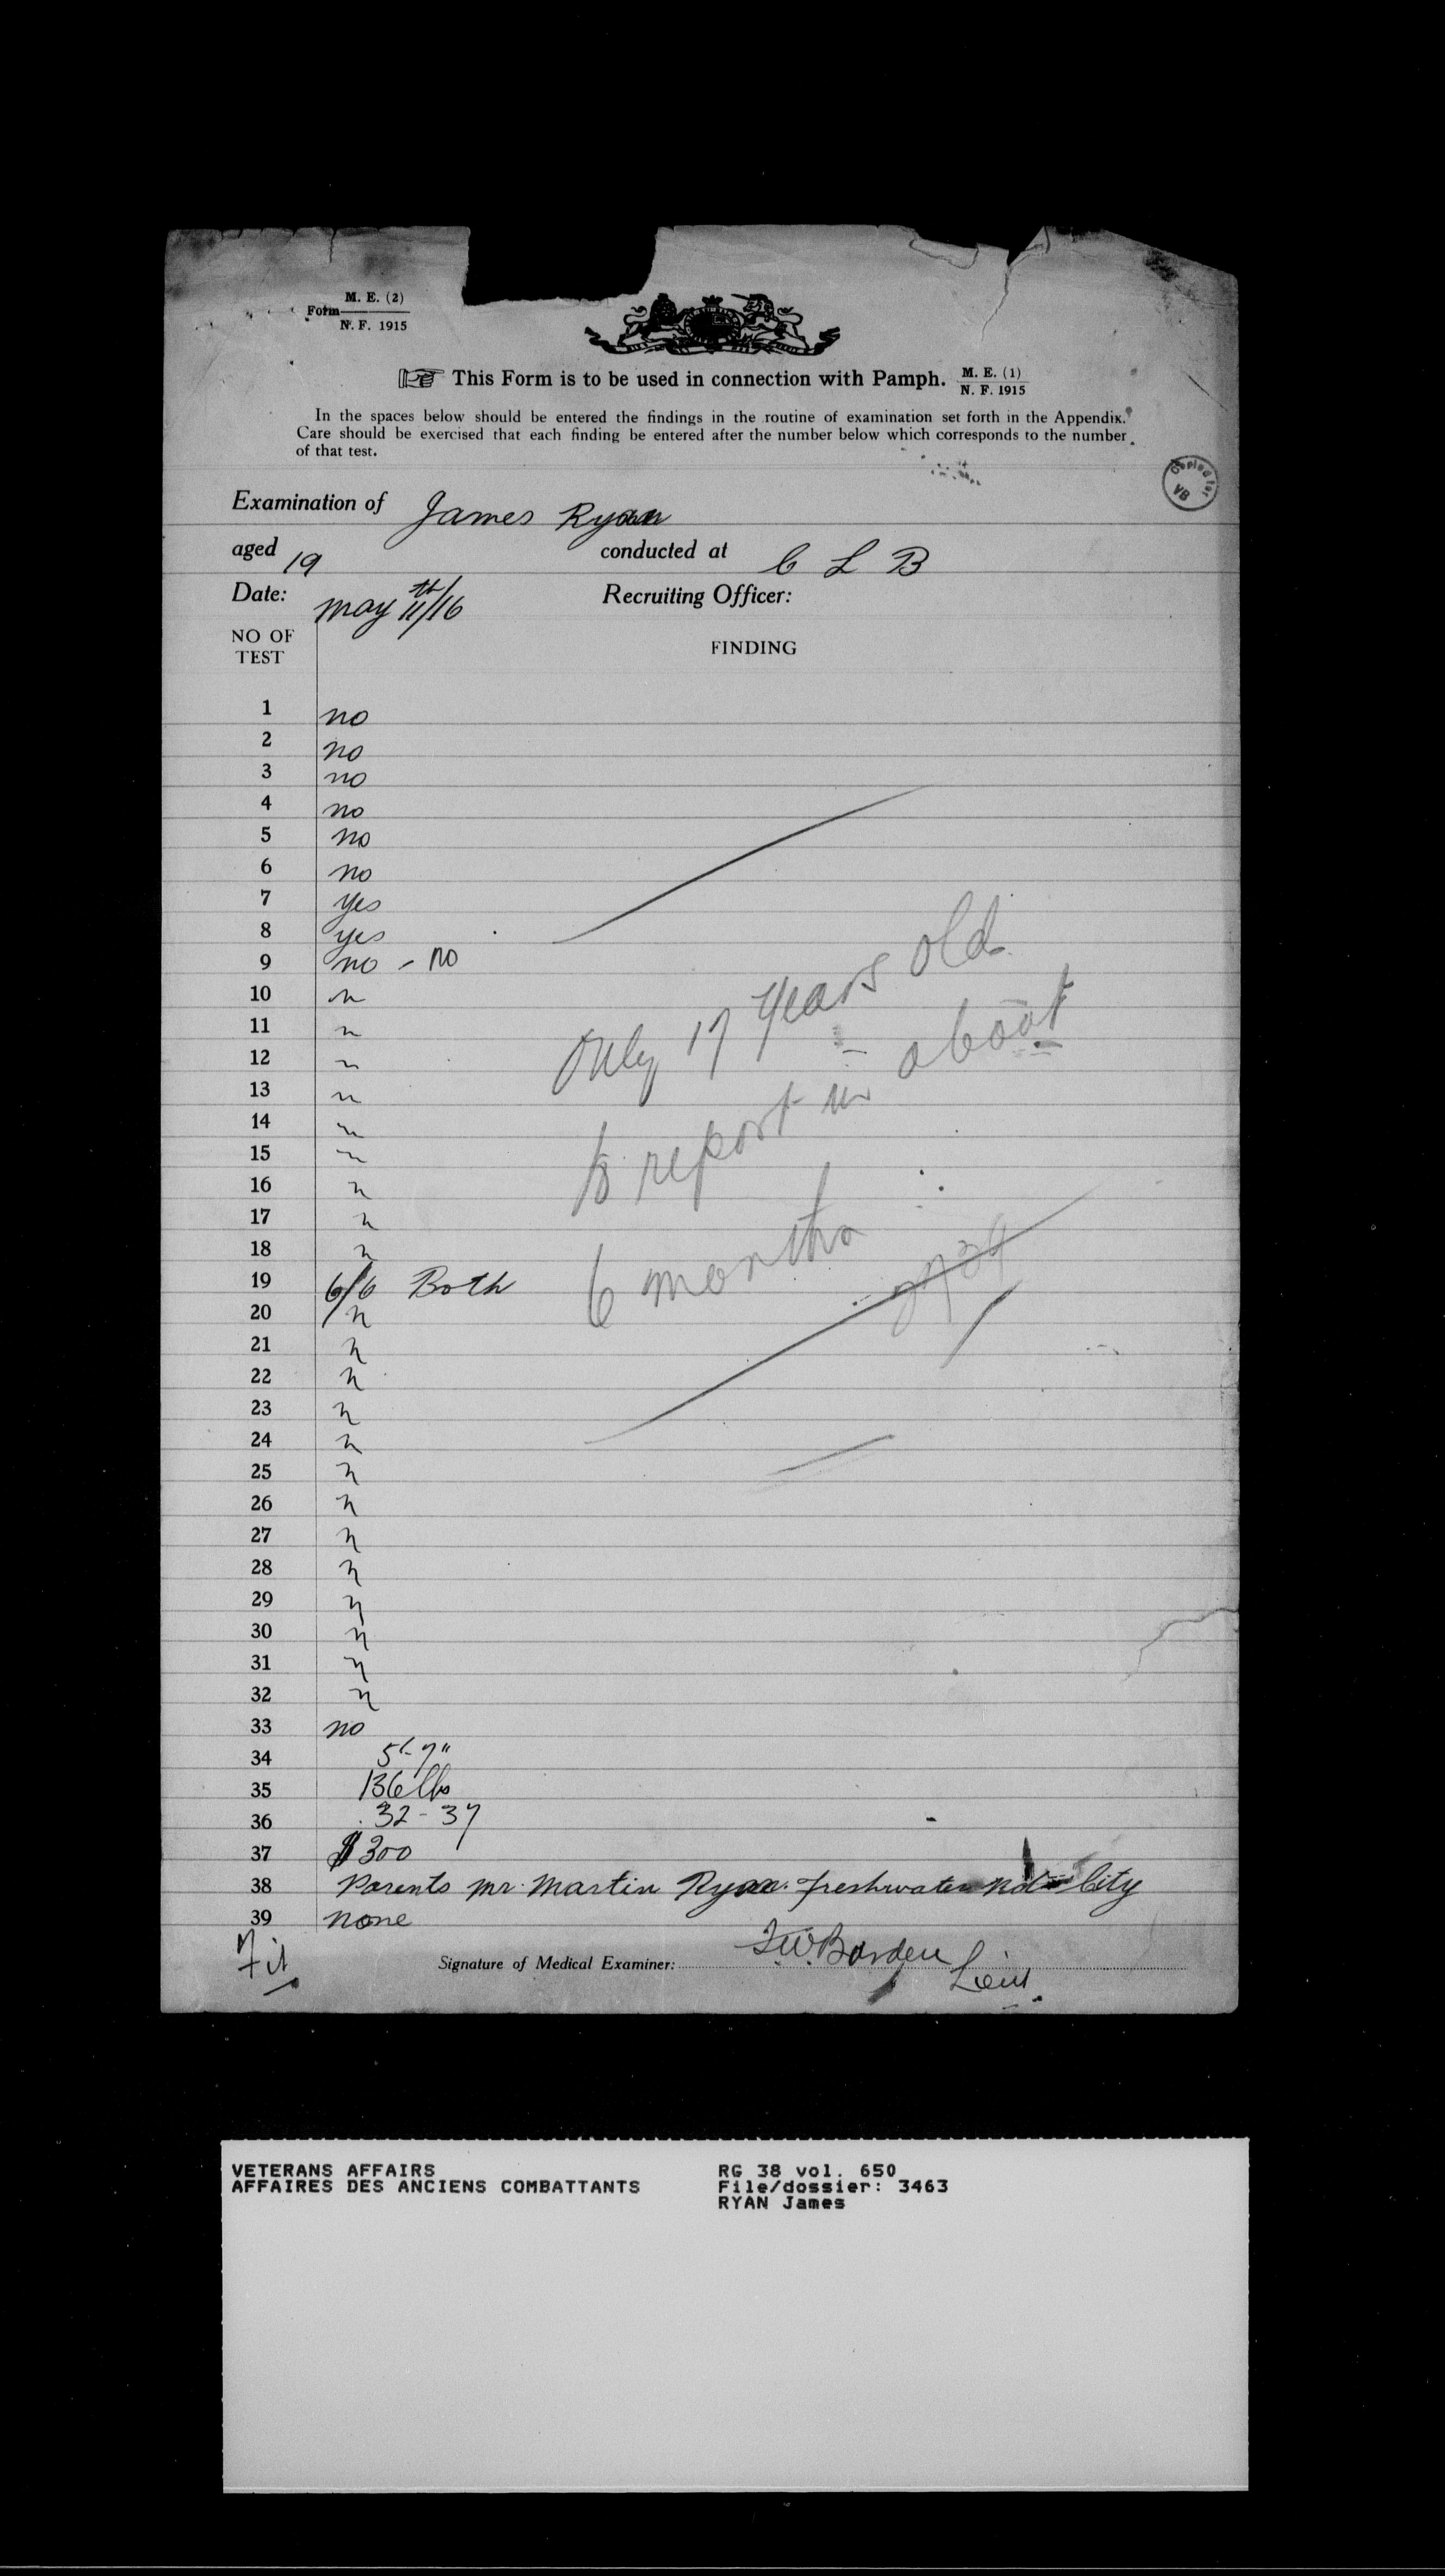 M. E. (2)
Form
N. F. 1915
This Form is to be used in connection with Pamph. M. E. (1)
N. F. 1915
In the spaces below should be entered the findings in the routine of examination set forth in the Appendix.
Care should be exercised that each finding be entered after the number below which corresponds to the number
of that test.
Copied for
VB
Examination of James Ryan
aged 19 conducted at C L B
Date: May 11th/16 Recruiting Officer:
NO OF
TEST
FINDING
1 no
2 no
3 no
4 no
5 no
6 no
7 yes
8 yes
9 no - no
10 n
11 n
12 n
13 n
14 n
15 n
16 n
17 n
18 n
19 6/6 Both
20 n
21 n
22 n
23 n
24 n
25 n
26 n
27 n
28 n
29 n
30 n
31 n
32 n
33 no
34 5'-7"
35 136 lbs
36 32-37
37 $300
38 Parents Mr. Martin Ryan. Freshwater City
39 none
Only 17 years old
to report in about
6 months
Fit
Signature of Medical Examiner: Lieut.
VETERANS AFFAIRS
AFFAIRES DES ANCIENS COMBATTANTS
RG 38 vol. 650
File/dossier: 3463
RYAN James